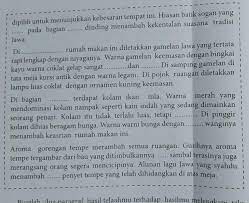 dipilih untuk menunjukkan kebesaran tempat ini. Hiasan batik sogan yang
..... pada bagian ..... dinding menambah kekentalan suasana tradisi
Jawa.
Di ..... rumah makan ini diletakkan gamelan Jawa yang tertata
rapi lengkap dengan nayaganya. Warna gamelan keemasan dengan bingkai
kayu warna coklat gelap sangat ..... dan ..... Di samping gamelan di
tata meja kursi antik dengan warna legam. Di pojok ruangan diletakkan
lampu hias coklat dengan ornamen kuning keemasan.
Di bagian ..... terdapat kolam ikan nila. Warna merah yang
mendominasi kolam nampak seperti kain indah yang sedang dimainkan
seorang penari. Kolam itu tidak terlalu luas, tetapi ..... Di pinggir
kolam dihias beragam bunga. Warna warni bunga dengan ..... wanginya
menambah keasrian rumah makan ini.
Aroma gorengan tempe merambah semua ruangan. Gurihnya aroma
tempe tergambar dari bau yang ditimbulkannya ..... sambal terasinya juga
merangsang orang segera mencicipinya. Alunan lagu Jawa yang syahdu
menambah ..... penyet tempe yang telah dihidangkan di atas meja.